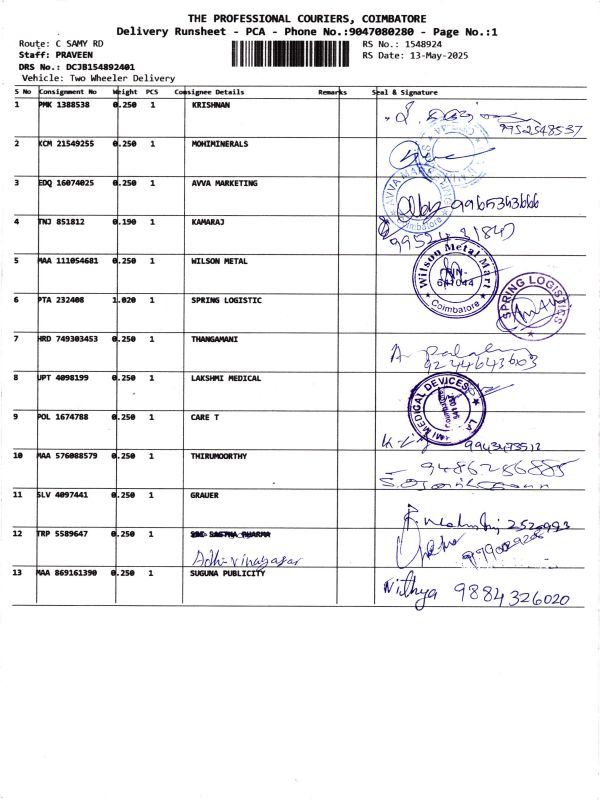 THE PROFESSIONAL COURIERS, COIMBATORE
Delivery Runsheet - PCA - Phone No.:9047080280 - Page No.:1
Route: C SAMY RD RS No.: 1548924
Staff: PRAVEEN RS Date: 13-May-2025
DRS No.: DCJB154892401
Vehicle: Two Wheeler Delivery
S No Consignment No Weight PCS Consignee Details Remarks Seal & Signature
1 PMK 1388538 0.250 1 KRISHNAN
9952548537
2 KCM 21549255 0.250 1 MOHIMINERALS
3 EDQ 16074025 0.250 1 AVVA MARKETING
AVVA MARKETING Coimbatore
9965343666
4 TNJ 851812 0.190 1 KAMARAJ
5 MAA 111054681 0.250 1 WILSON METAL
Wilson Metal Mart
PIN-
641044
Coimbatore
6 PTA 232408 1.020 1 SPRING LOGISTIC
SPRING LOGISTICS
7 HRD 749303453 0.250 1 THANGAMANI
9244643603
8 UPT 4098199 0.250 1 LAKSHMI MEDICAL
MEDICAL DEVICES
9 POL 1674788 0.250 1 CARE T
9943473512
10 MAA 576088579 0.250 1 THIRUMOORTHY
9486286885
11 SLV 4097441 0.250 1 GRAUER
2520993
12 TRP 5589647 0.250 1
Adhi-vinayagar
13 MAA 869161390 0.250 1 SUGUNA PUBLICITY
Nithya 9884326020